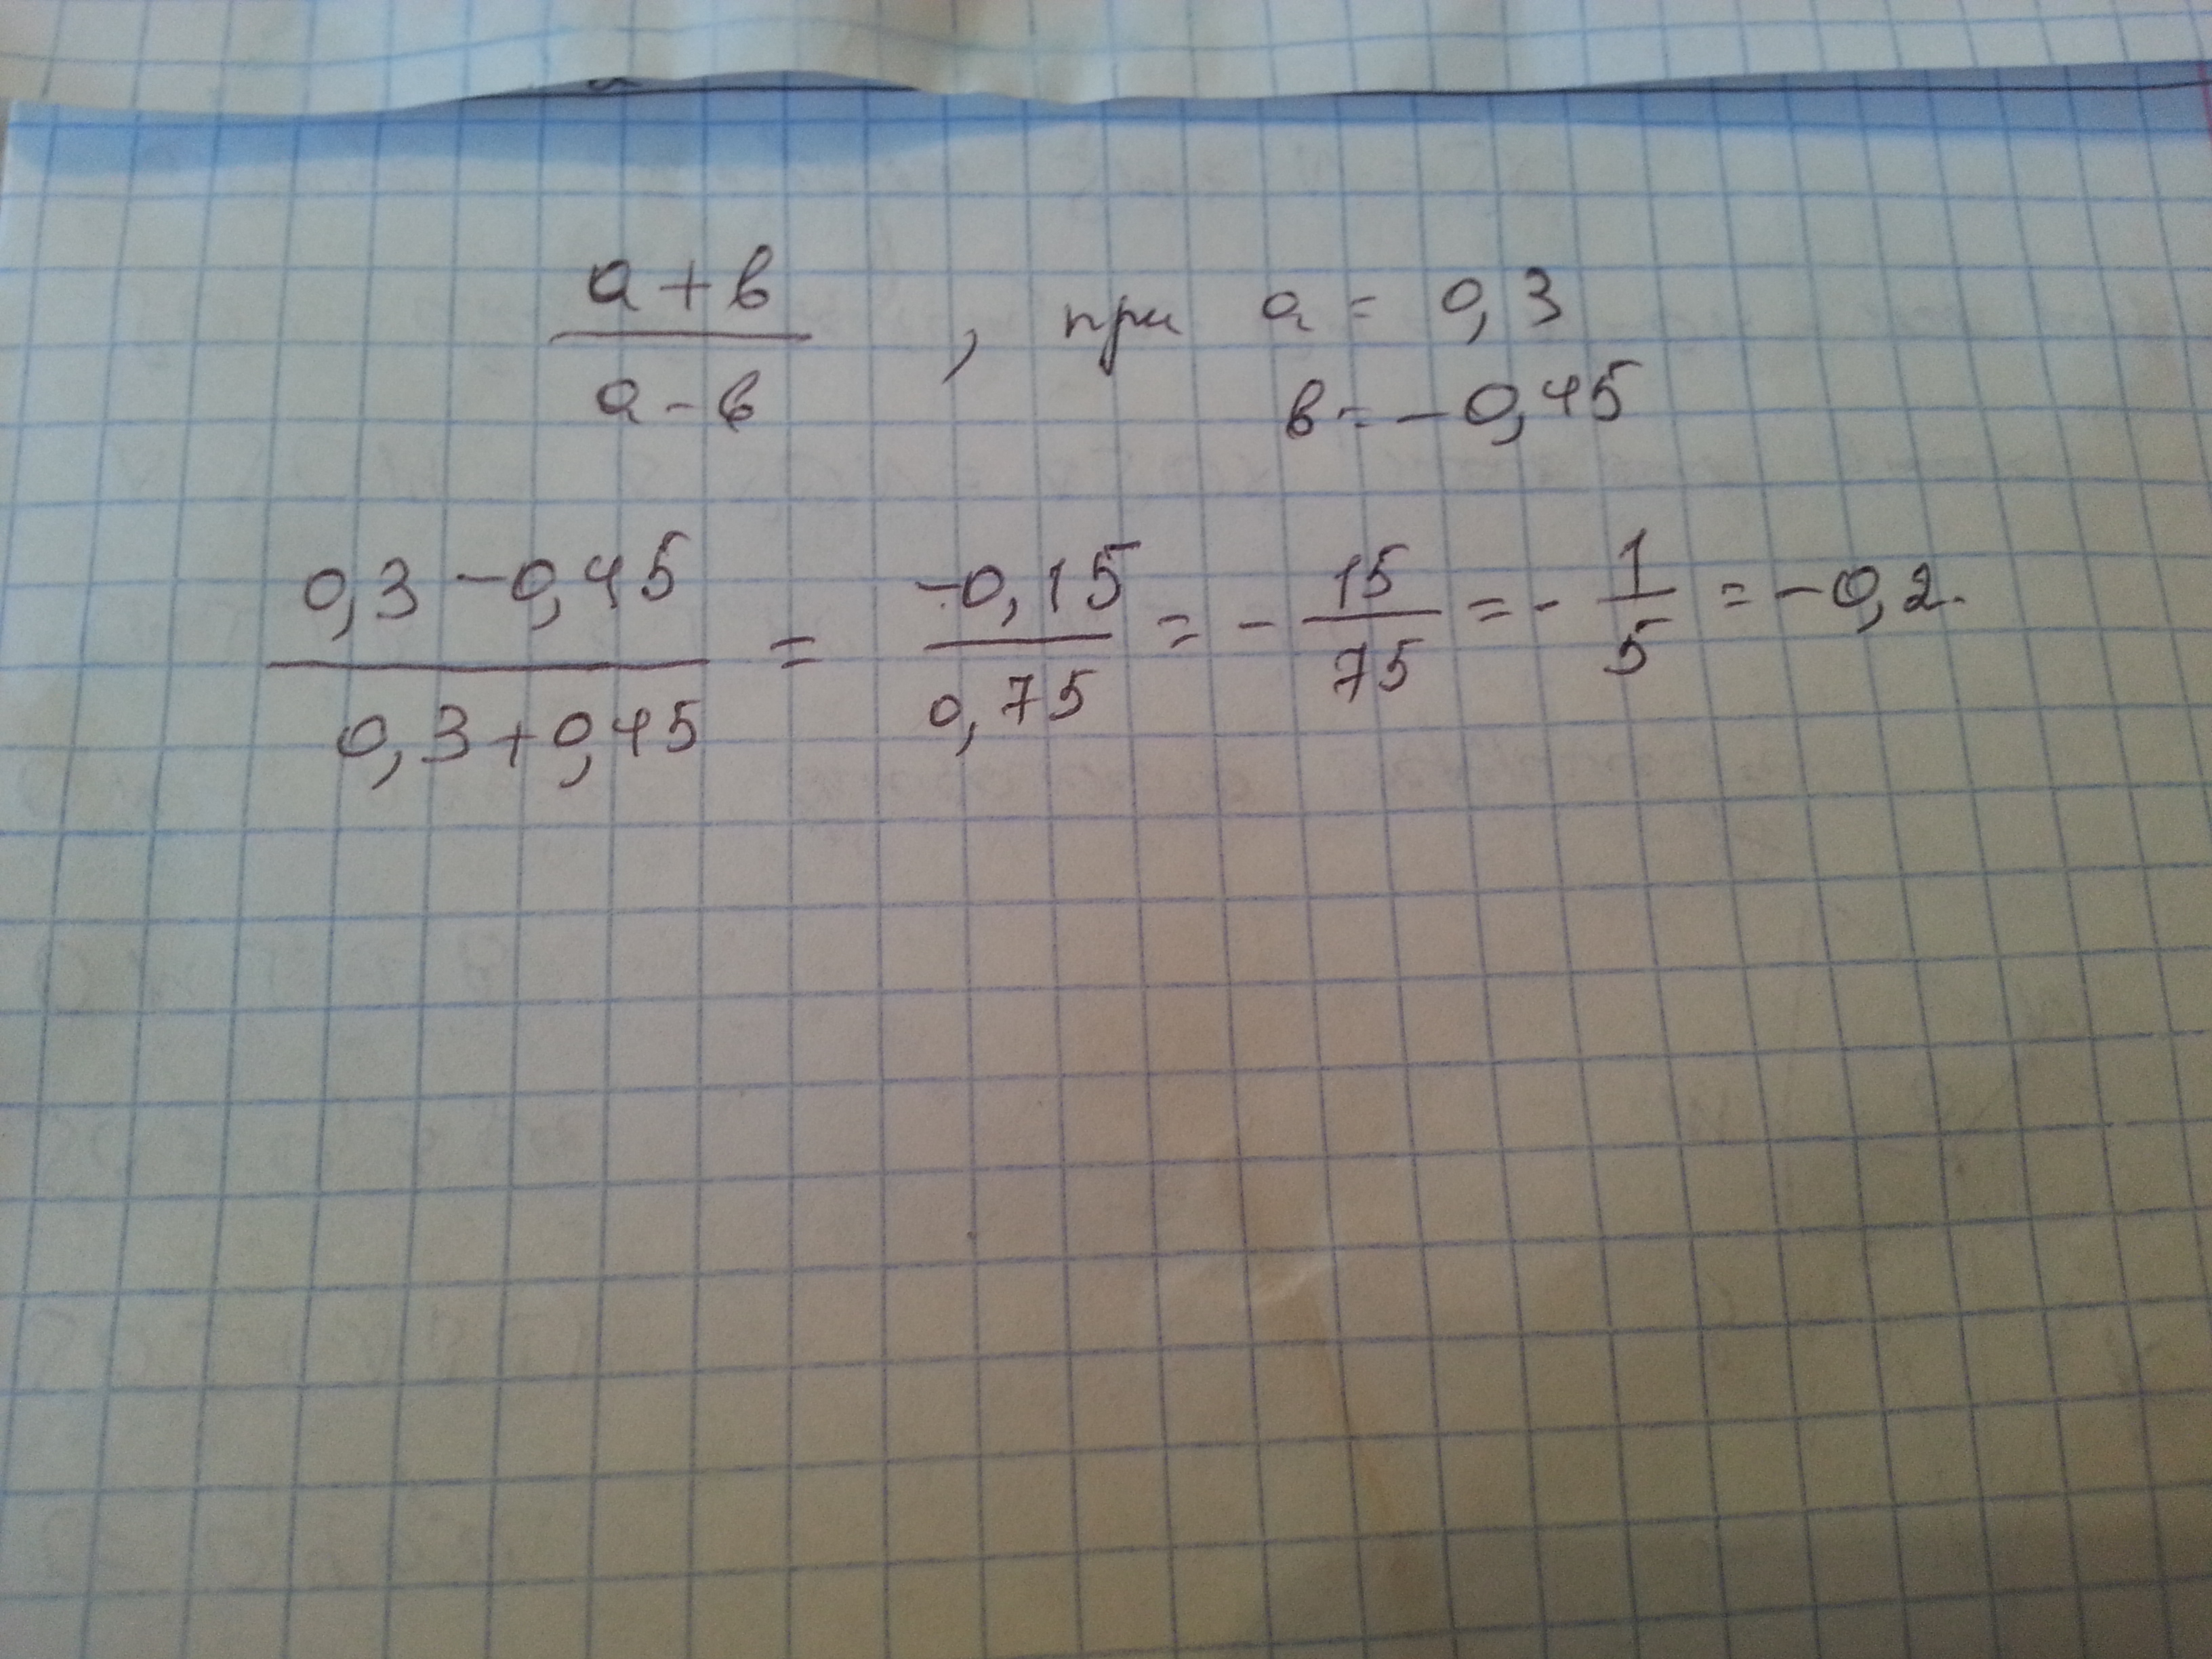 a+в
a-в , при a = 0,3
в = -0,45
0,3 -0,45 / 0,3+0,45 = -0,15 / 0,75 = - 15/75 = - 1/5 = -0,2.